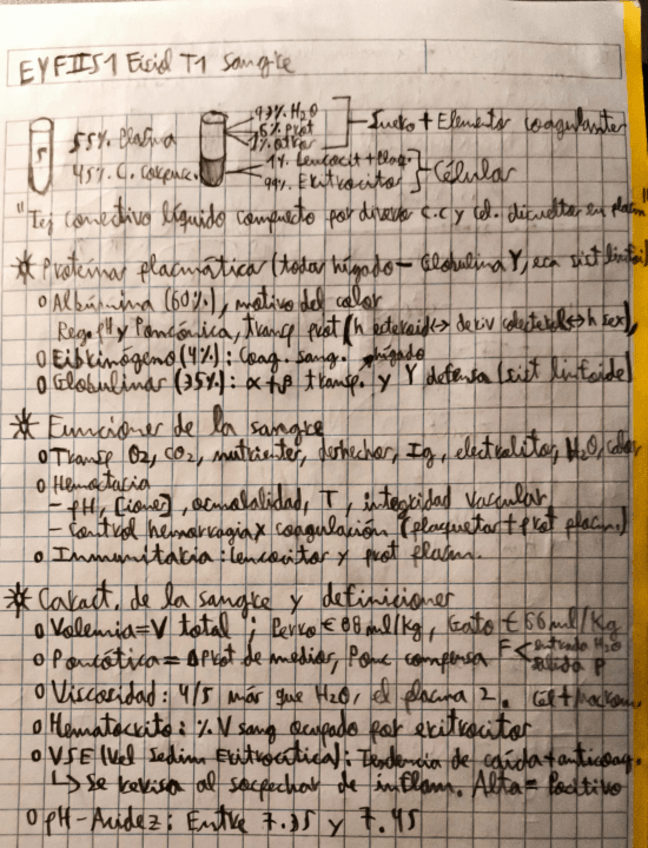 EYFIIS1 Eisiol T1 Sangre
55% Plasma
45% C. corpusc.
93% H₂O
6% Prot
1% otros
Suero + Elementos coagulantes
1% Leucocit + Plaq.
99% Eritrocitos
Célular
"Tej conectivo líquido compuesto por diversos c.c y cel. disueltas en plasm"
* Proteínas plasmáticas (todas hígado - Globulina Y, esa sist linfoi)
o Albúmina (60%), motivo del color
Reg. pH y P oncónica, transp prot (h esteroid ↔ deriv colesterol ↔ h sex),
o Fibrinógeno (4%): Coag. sang. hígado
o Globulinas (35%): α + β transp. y Y defensa (sist linfoide)
* Funciones de la sangre
o Transp O₂, CO₂, nutrientes, deshechos, Ig, electrolitos, H₂O, calor
o Hemostasia
- pH, [iones], osmolalidad, T, integridad vascular
- Control hemorragia x coagulación (plaquetas + prot plasm.)
o Inmunitaria: leucocitos y prot plasm.
* Caract. de la sangre y definiciones
o Volemia = V total ; Perro € 88 ml/kg, Gato € 66 ml/kg
o P oncótica = Δ Prot de medios, P onc compensa F < entrada H₂O
salida P
o Viscosidad: 4/5 más que H₂O, el plasma 2. Cel + Macrom.
o Hematocrito: % V sang ocupado por eritrocitos
o VSE (Vel Sedim Eritrocítica): Tendencia de caída + anticoag.
↳ Se revisa al sospechar de inflam. Alta = Positivo
o pH - Acidez: Entre 7.35 y 7.45